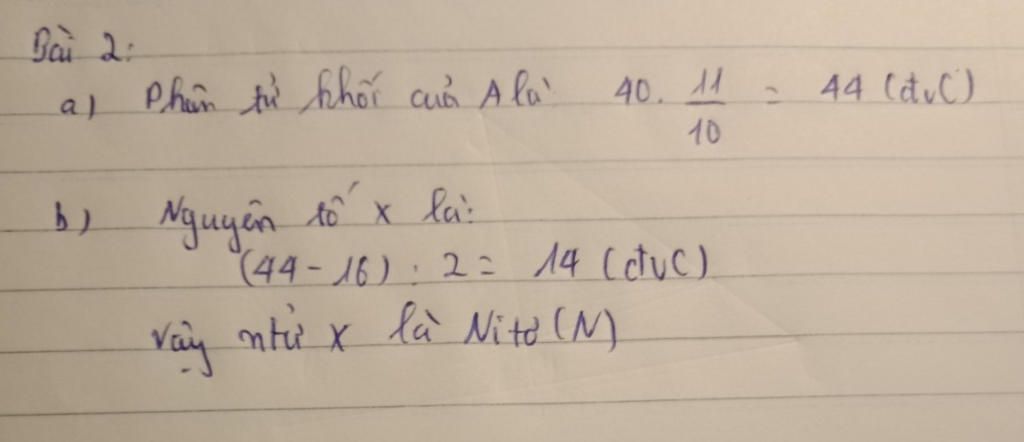 Bài 2:
a) Phân tử khối của A là: 40. 11/10 = 44 (đvC)
b) Nguyên tố x là:
(44 - 16) : 2 = 14 (đvC)
Vậy ntử x là Nitơ (N)